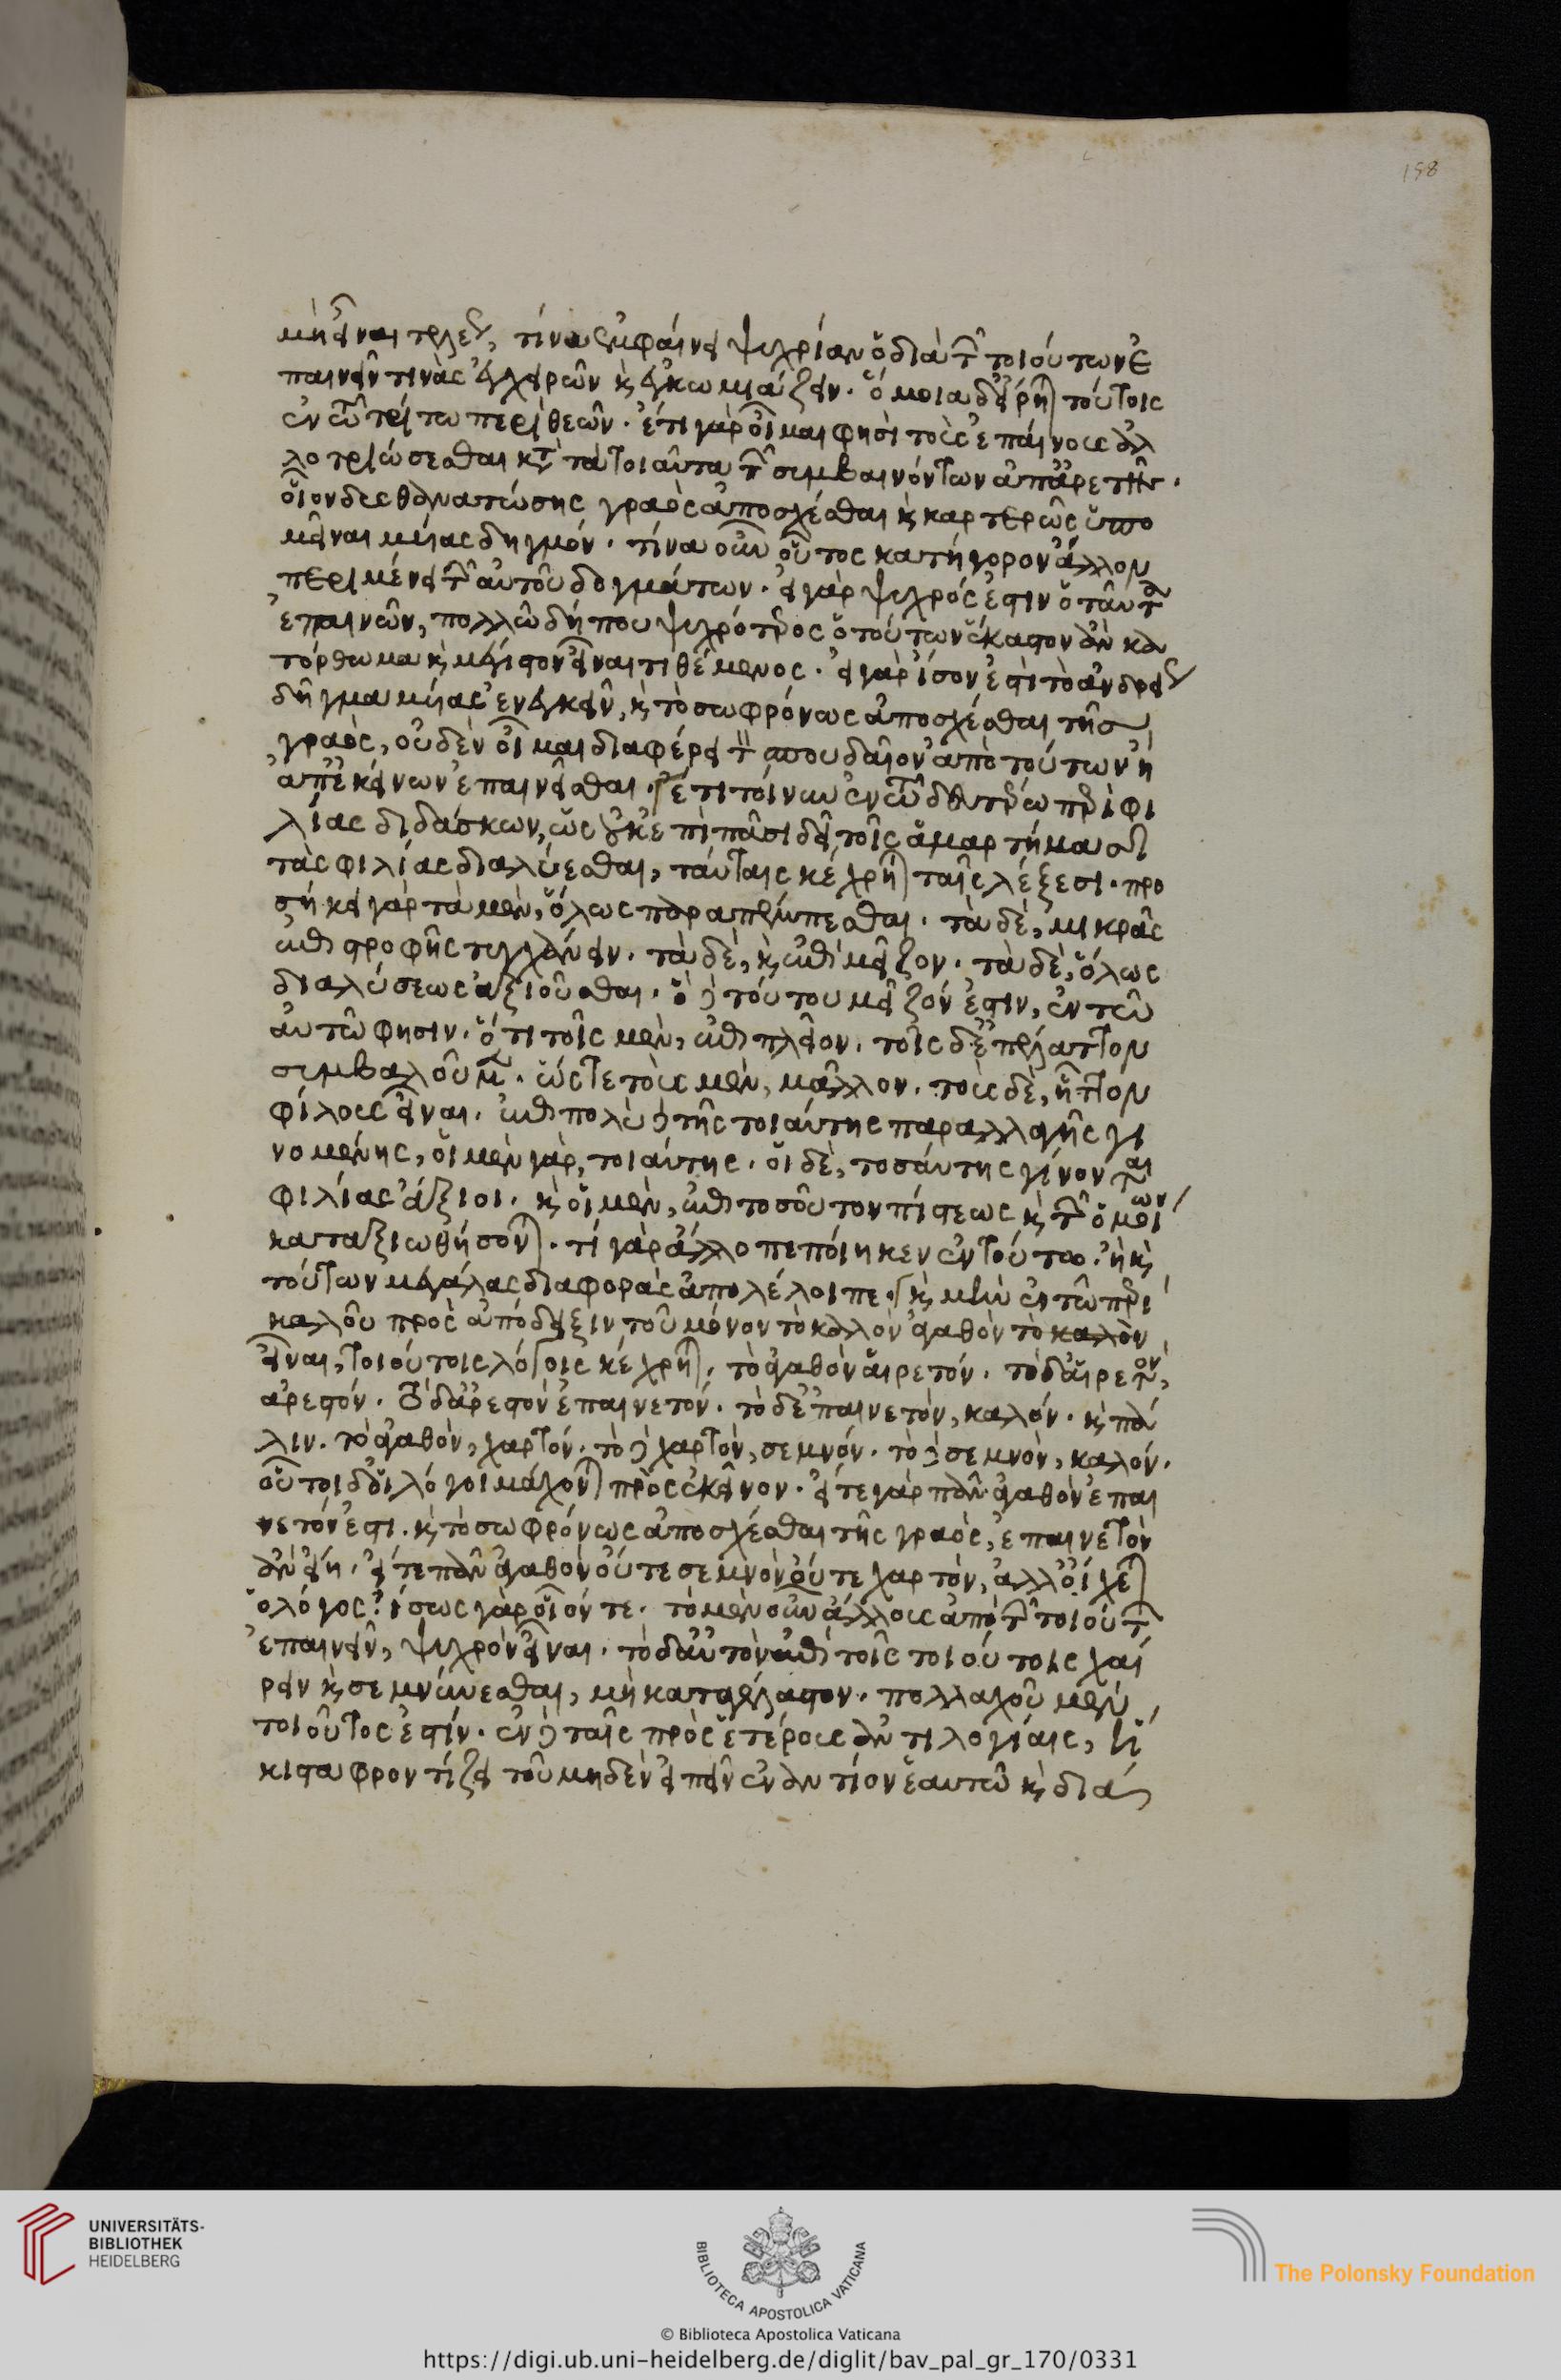 158
μὴ εἶναι τρεῖς, τίνα ἐμφαίνει ψυχρίαν ὁ διὰ τῶν τοιούτων ἐ
παινεῖν τινὰς ἐγχειρῶν καὶ ἐγκωμιάζειν. ὅμοια δ' εἴρηται τούτοις
ἐν τῶ τρίτω περὶ θεῶν. ἔτι γὰρ οἶμαι φησὶ τοὺς ἐπαίνους ἀλ
λοτριώσεσθαι κατὰ τὰ τοιαῦτα τῶν συμβαινόντων ἀπ' ἀρετῆς.
οἷον δυσθανατώσης γραὸς ἀποσχέσθαι καὶ καρτερῶς ὑπο
μεῖναι μυίας δηγμόν. τίνα οὖν οὗτος κατήγορον ἄλλον
περιμένει τῶν αὐτοῦ δογμάτων. εἰ γὰρ ψυχρός ἐστιν ὁ ταῦτα
ἐπαινῶν, πολλῶ δήπου ψυχρότερος ὁ τούτων ἕκαστον ἀν κα
τόρθωμα καὶ μέγιστον εἶναι τιθέμενος. εἰ γὰρ ἴσον ἐστὶ τὸ ἀνδρείως
δῆγμα μυίας ἐνεγκεῖν, καὶ τὸ σωφρόνως ἀποσχέσθαι τῆς
γραὸς, οὐδὲν οἶμαι διαφέρει τὸν σπουδαῖον ἀπὸ τούτων ἢ
ἀπ' ἐκείνων ἐπαινεῖσθαι. ἔτι τοίνυν ἐν τῶ δευτέρω περὶ φι
λίας διδάσκων, ὡς οὐκ ἐπὶ πᾶσι δεῖ τοῖς ἁμαρτήμασι
τὰς φιλίας διαλύεσθαι, ταύταις κέχρηται ταῖς λέξεσι. προ
σήκει γὰρ τὰ μὲν, ὅλως παραπέμπεσθαι. τὰ δὲ, μικρᾶς
ἐπιστροφῆς τυγχάνειν. τὰ δὲ, καὶ ἐπὶ μεῖζον. τὰ δὲ, ὅλως
διαλύσεως ἀξιοῦσθαι. ὃ δὲ τούτου μεῖζόν ἐστιν, ἐν τῶ
αὐτῶ φησιν. ὅτι τοῖς μὲν, ἐπὶ πλεῖον. τοῖς δ' ἐπ' ἔλαττον
συμβαλοῦμεν. ὥστε τοὺς μὲν, μᾶλλον. τοὺς δὲ, ἧττον
φίλους εἶναι. ἐπὶ πολὺ δὲ τῆς τοιαύτης παραλλαγῆς γι
νομένης, οἱ μὲν γὰρ, τοιαύτης. οἱ δὲ, τοσαύτης γίνονται
φιλίας ἄξιοι. καὶ οἱ μὲν, ἐπὶ τοσοῦτον πίστεως καὶ τῶν ὁμοίων
καταξιωθήσονται. τί γὰρ ἄλλο πεποίηκεν ἐν τούτω. ἢ καὶ
τούτων μεγάλας διαφορὰς ἀπολέλοιπε. καὶ μὴν ἐν τῶ περὶ
καλοῦ πρὸς ἀπόδειξιν τοῦ μόνον τὸ καλὸν ἀγαθὸν τὸ καλὸν
εἶναι, τοιούτοις λόγοις κέχρηται. τὸ ἀγαθὸν αἱρετόν. τὸ δ' αἱρετὸν,
ἀρεστόν. τὸ δ' ἀρεστὸν ἐπαινετόν. τὸ δ' ἐπαινετὸν, καλόν. καὶ πά
λιν. τὸ ἀγαθὸν, χαρτόν. τὸ δὲ χαρτὸν, σεμνόν. τὸ δὲ σεμνὸν, καλόν.
οὗτοι δ' οἱ λόγοι μάχονται πρὸς ἐκεῖνον. εἴτε γὰρ πᾶν ἀγαθὸν ἐπαι
νετόν ἐστι. καὶ τὸ σωφρόνως ἀποσχέσθαι τῆς γραὸς, ἐπαινετὸν
ἀν εἴη. εἴτε πᾶν ἀγαθὸν οὔτε σεμνὸν οὔτε χαρτὸν, ἀλλ' οἴχεται
ὁ λόγος. ἴσως γὰρ οἷόν τε. τὸ μὲν οὖν ἄλλους ἀπὸ τῶν τοιούτων
ἐπαινεῖν, ψυχρὸν εἶναι. τὸ δ' αὐτὸν ἐπὶ τοῖς τοιούτοις χαί
ρειν καὶ σεμνύνεσθαι, μὴ καταγέλαστον. πολλαχοῦ μὲν
τοιοῦτος ἐστίν. ἐν δὲ ταῖς πρὸς ἑτέρους ἀντιλογίαις, ἥ
κιστα φροντίζει τοῦ μηδὲν εἰπεῖν ἐναντίον ἑαυτῶ καὶ διά
UNIVERSITÄTS-
BIBLIOTHEK
HEIDELBERG
BIBLIOTECA APOSTOLICA VATICANA
The Polonsky Foundation
© Biblioteca Apostolica Vaticana
https://digi.ub.uni-heidelberg.de/diglit/bav_pal_gr_170/0331